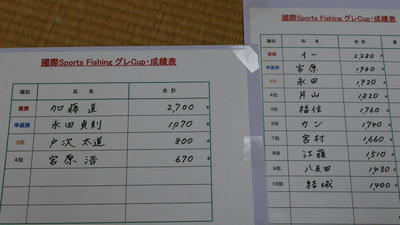 國際Sports Fishing グレCup・成績表
順位 氏 名 合 計
優勝 加藤 直 2,700 g
準優勝 永田 貞則 1,070 g
3位 戸次 太道 800 g
4位 宮原 浩 670 g
國際Sports Fishing グレCup・成績表
順位 氏 名 合 計
優勝 イー 2,280 g
準優勝 宮原 1,980 g
3位 永田 1,920 g
4位 片山 1,820 g
5位 稲位 1,760 g
6位 カン 1,740 g
7位 宮村 1,660 g
8位 江藤 1,510 g
9位 八反田 1,430 g
10位 結城 1,400 g